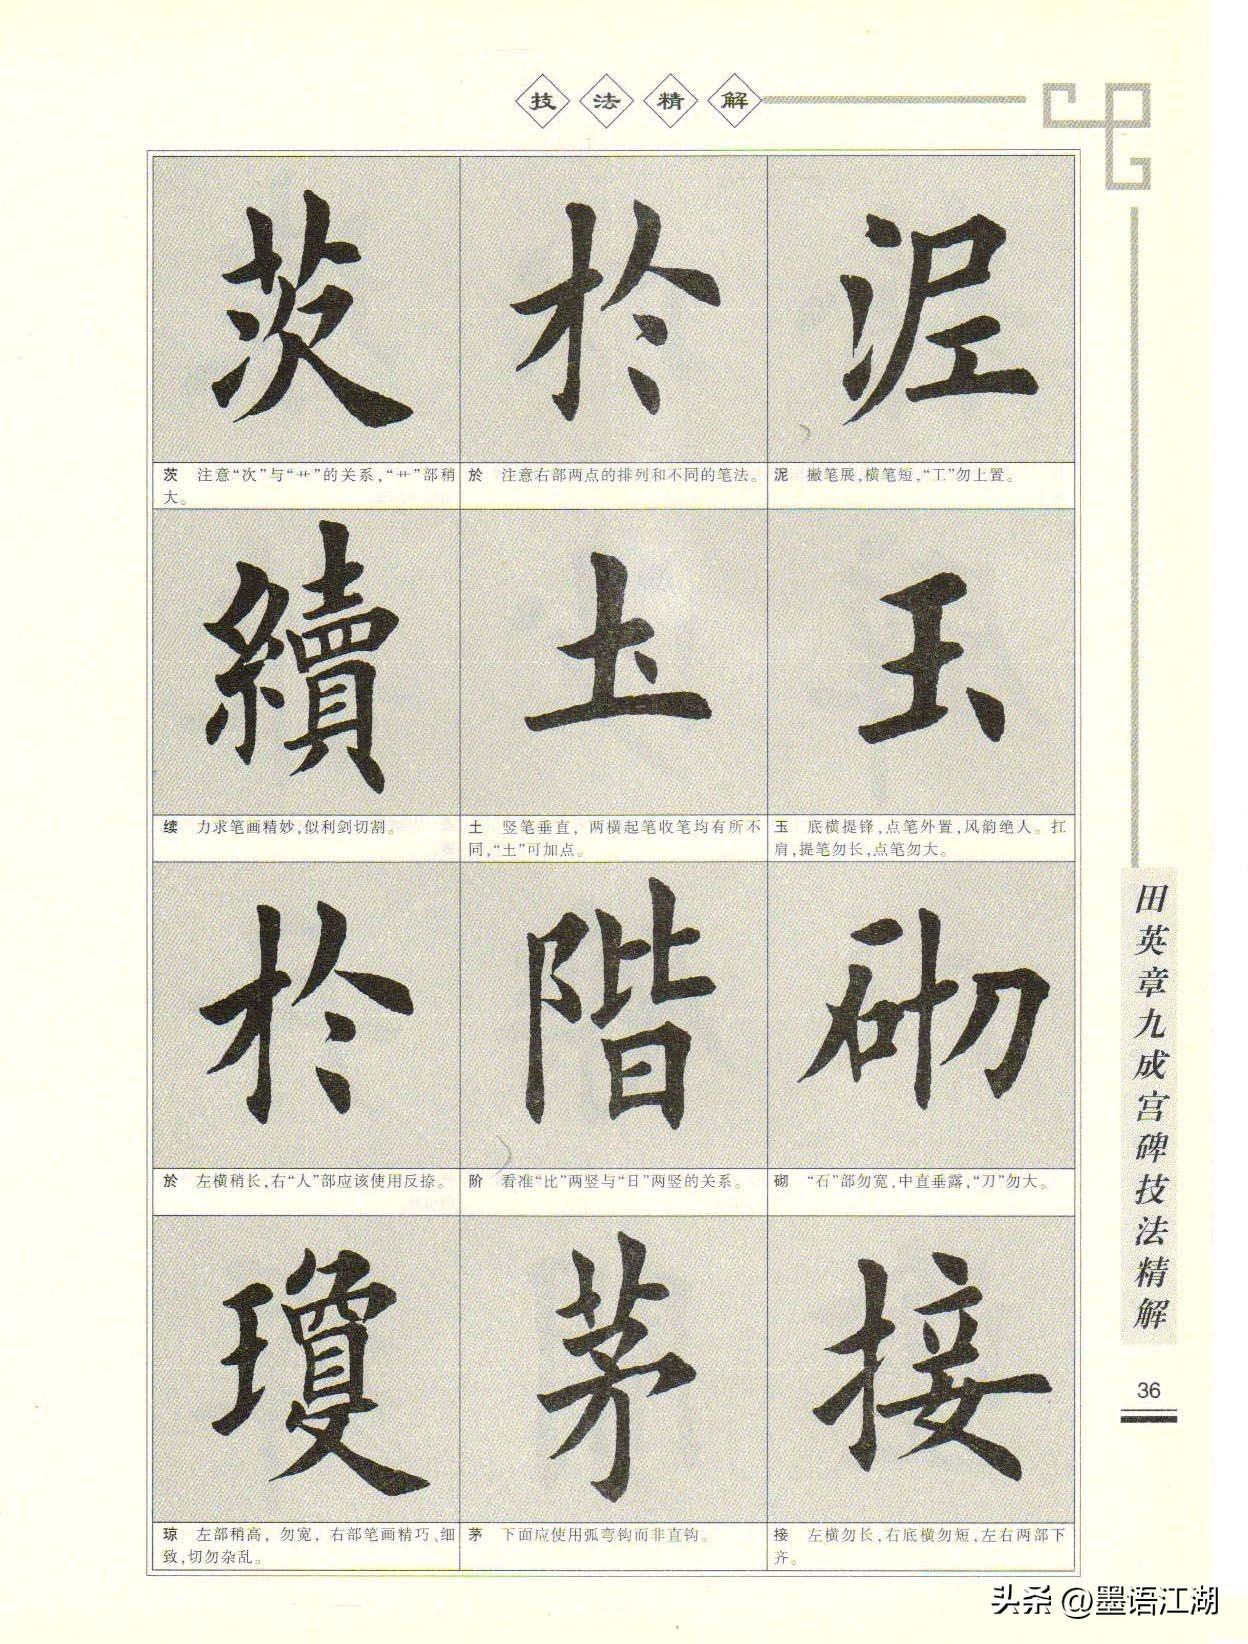 技法精解
茨 於 泥
茨 注意“次”与“艹”的关系，“艹”部稍
大。
於 注意右部两点的排列和不同的笔法。
泥 撇笔展，横笔短，“工”勿上置。
續 土 玉
续 力求笔画精妙，似利剑切割。
土 竖笔垂直，两横起笔收笔均有所不
同，“土”可加点。
玉 底横提锋，点笔外置，风韵绝人。扛
肩，提笔勿长，点笔勿大。
於 階 砌
於 左横稍长，右“人”部应该使用反捺。
阶 看准“比”两竖与“日”两竖的关系。
砌 “石”部勿宽，中直垂露，“刀”勿大。
瓊 茅 接
琼 左部稍高，勿宽，右部笔画精巧、细
致，切勿杂乱。
茅 下面应使用弧弯钩而非直钩。
接 左横勿长，右底横勿短，左右两部下
齐。
田英章九成宫碑技法精解
36
头条 @墨语江湖